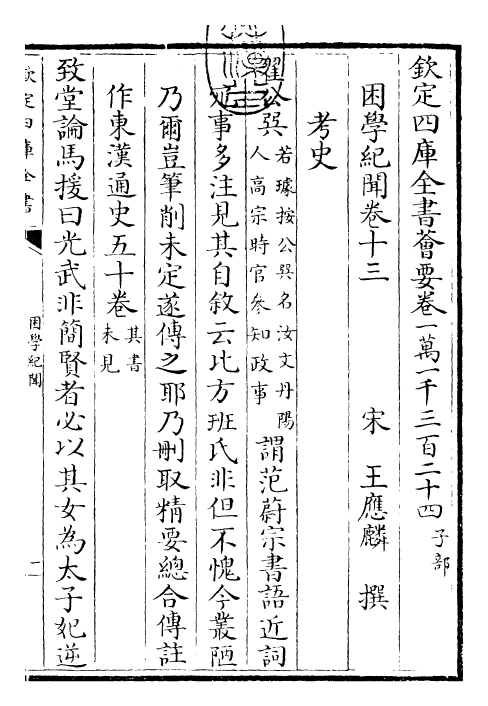 欽定四庫全書薈要卷一萬一千三百二十四 子部
困學紀聞卷十三
宋 王應麟 撰
考史
翟公巽 若璩按公巽名汝文丹陽
人高宗時官參知政事 謂范蔚宗書語近詞
冗事多注見其自敘云比方班氏非但不愧今叢陋
乃爾豈筆削未定遂傳之耶乃刪取精要總合傳註
作東漢通史五十卷 其書
未見
致堂論馬援曰光武非簡賢者必以其女為太子妃逆
欽定四庫全書
困學紀聞